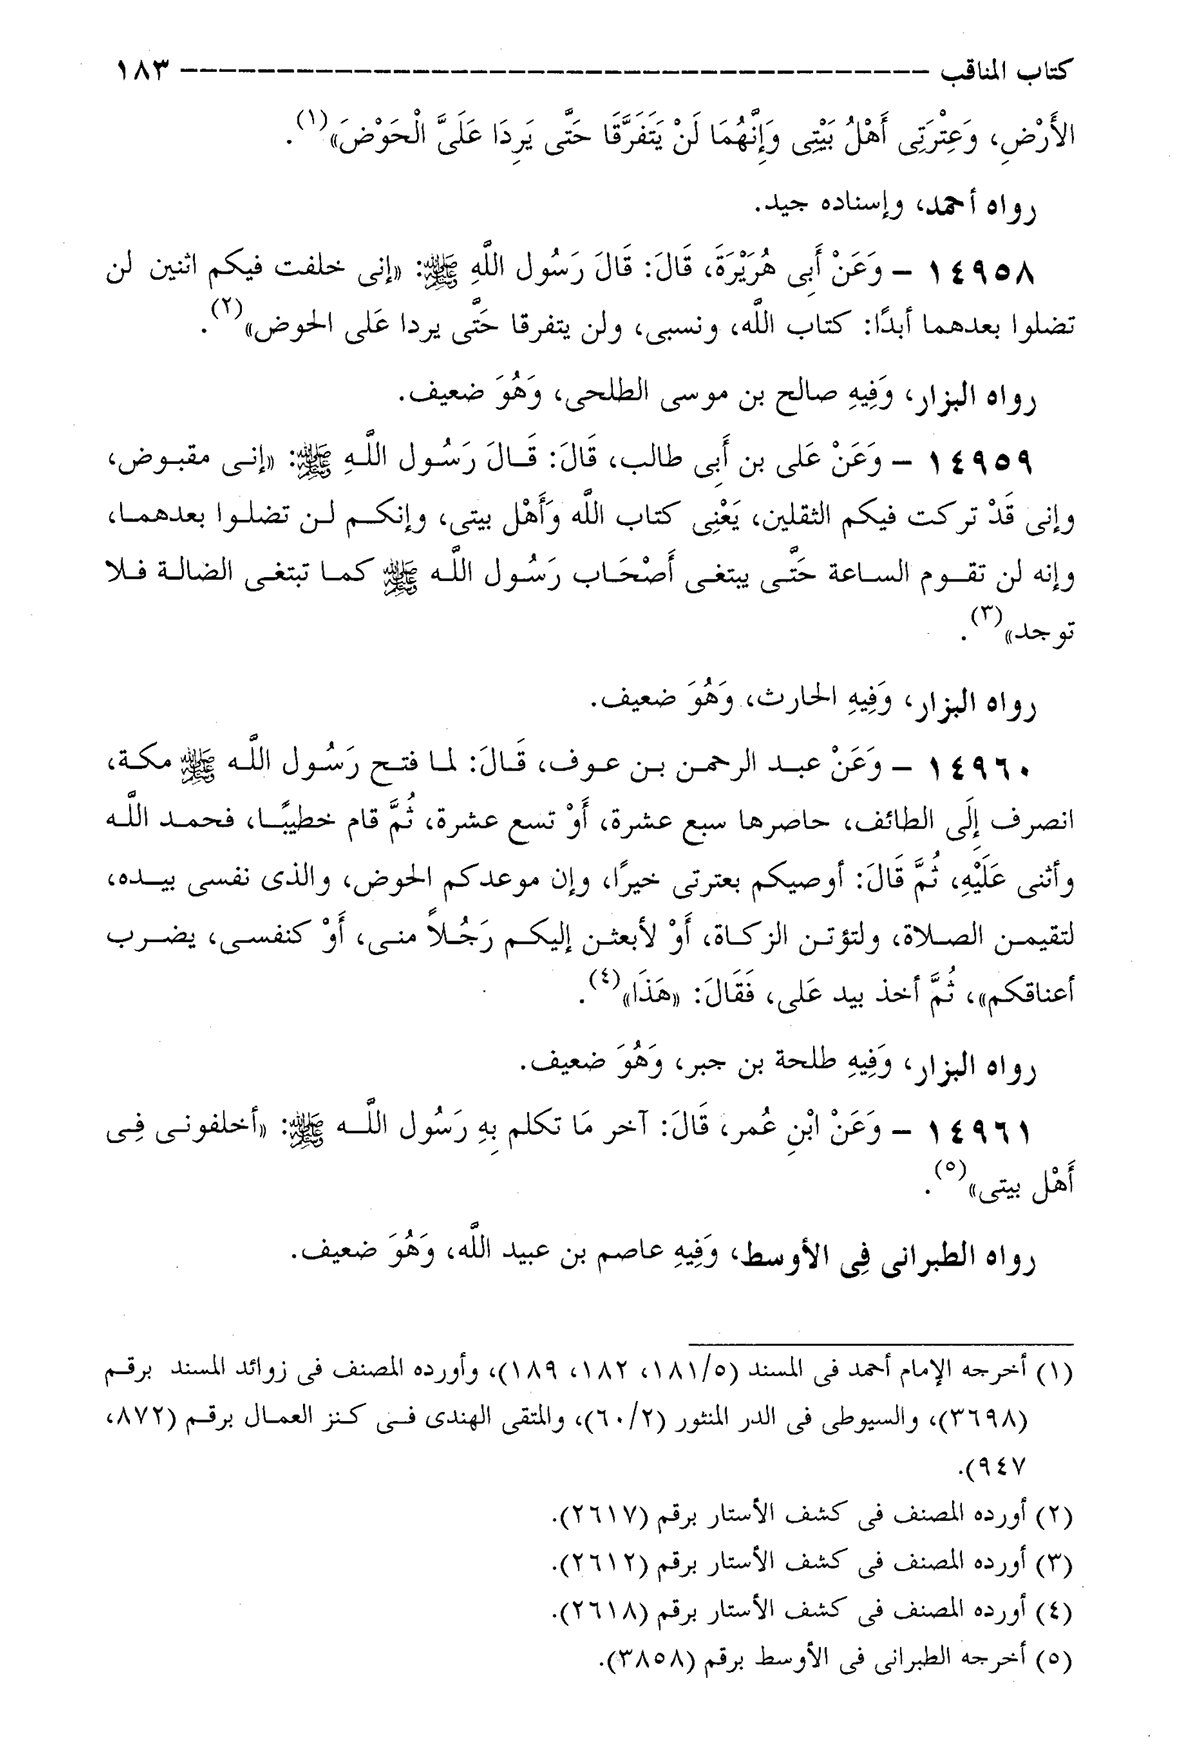 كتاب المناقب ---------------------------------------- ١٨٣
الأَرْضِ، وَعِتْرَتِى أَهْلُ بَيْتِى وَإِنَّهُمَا لَنْ يَتَفَرَّقَا حَتَّى يَرِدَا عَلَىَّ الْحَوْضَ»(١).
رواه أحمد، وإسناده جيد.
١٤٩٥٨ – وَعَنْ أَبِى هُرَيْرَةَ، قَالَ: قَالَ رَسُول اللَّهِ ﷺ: «إنى خلفت فيكم اثنين لن
تضلوا بعدهما أبدًا: كتاب اللَّه، ونسبى، ولن يتفرقا حَتَّى يردا عَلى الحوض»(٢).
رواه البزار، وَفِيهِ صالح بن موسى الطلحى، وَهُوَ ضعيف.
١٤٩٥٩ – وَعَنْ عَلى بن أَبِى طالب، قَالَ: قَـالَ رَسُـول اللَّـهِ ﷺ: «إنـى مقبـوض،
وإنى قَدْ تركت فيكم الثقلين، يَعْنِى كتاب اللَّه وَأَهْل بيتى، وإنكـم لـن تضلـوا بعدهمـا،
وإنه لن تقـوم السـاعة حَتَّـى يبتغـى أَصْحَـاب رَسُـول اللَّـه ﷺ كمـا تبتغـى الضالـة فـلا
توجد»(٣).
رواه البزار، وَفِيهِ الحارث، وَهُوَ ضعيف.
١٤٩٦٠ – وَعَنْ عبـد الرحمـن بـن عـوف، قَـالَ: لمـا فتـح رَسُـول اللَّـه ﷺ مكـة،
انصرف إِلَى الطائف، حاصرها سبع عشرة، أَوْ تسع عشرة، ثُمَّ قام خطيبًـا، فحمـد اللَّـه
وأثنى عَلَيْهِ، ثُمَّ قَالَ: أوصيكم بعترتى خيرًا، وإن موعدكم الحوض، والذى نفسى بيـده،
لتقيمـن الصـلاة، ولتؤتـن الزكـاة، أَوْ لأبعثـن إليكـم رَجُـلاً منـى، أَوْ كنفسـى، يضـرب
أعناقكم»، ثُمَّ أخذ بيد عَلى، فَقَالَ: «هَذَا»(٤).
رواه البزار، وَفِيهِ طلحة بن جبر، وَهُوَ ضعيف.
١٤٩٦١ – وَعَنْ ابْنِ عُمر، قَالَ: آخر مَا تكلم بِهِ رَسُول اللَّـه ﷺ: «أخلفونـى فِـى
أَهْل بيتى»(٥).
رواه الطبرانى فِى الأوسط، وَفِيهِ عاصم بن عبيد اللَّه، وَهُوَ ضعيف.
(١) أخرجه الإمام أحمد فى المسند (١٨١/٥، ١٨٢، ١٨٩)، وأورده المصنف فى زوائد المسند برقـم
(٣٦٩٨)، والسيوطى فى الدر المنثور (٦٠/٢)، والمتقى الهندى فـى كنـز العمـال برقـم (٨٧٢،
٩٤٧).
(٢) أورده المصنف فى كشف الأستار برقم (٢٦١٧).
(٣) أورده المصنف فى كشف الأستار برقم (٢٦١٢).
(٤) أورده المصنف فى كشف الأستار برقم (٢٦١٨).
(٥) أخرجه الطبرانى فى الأوسط برقم (٣٨٥٨).